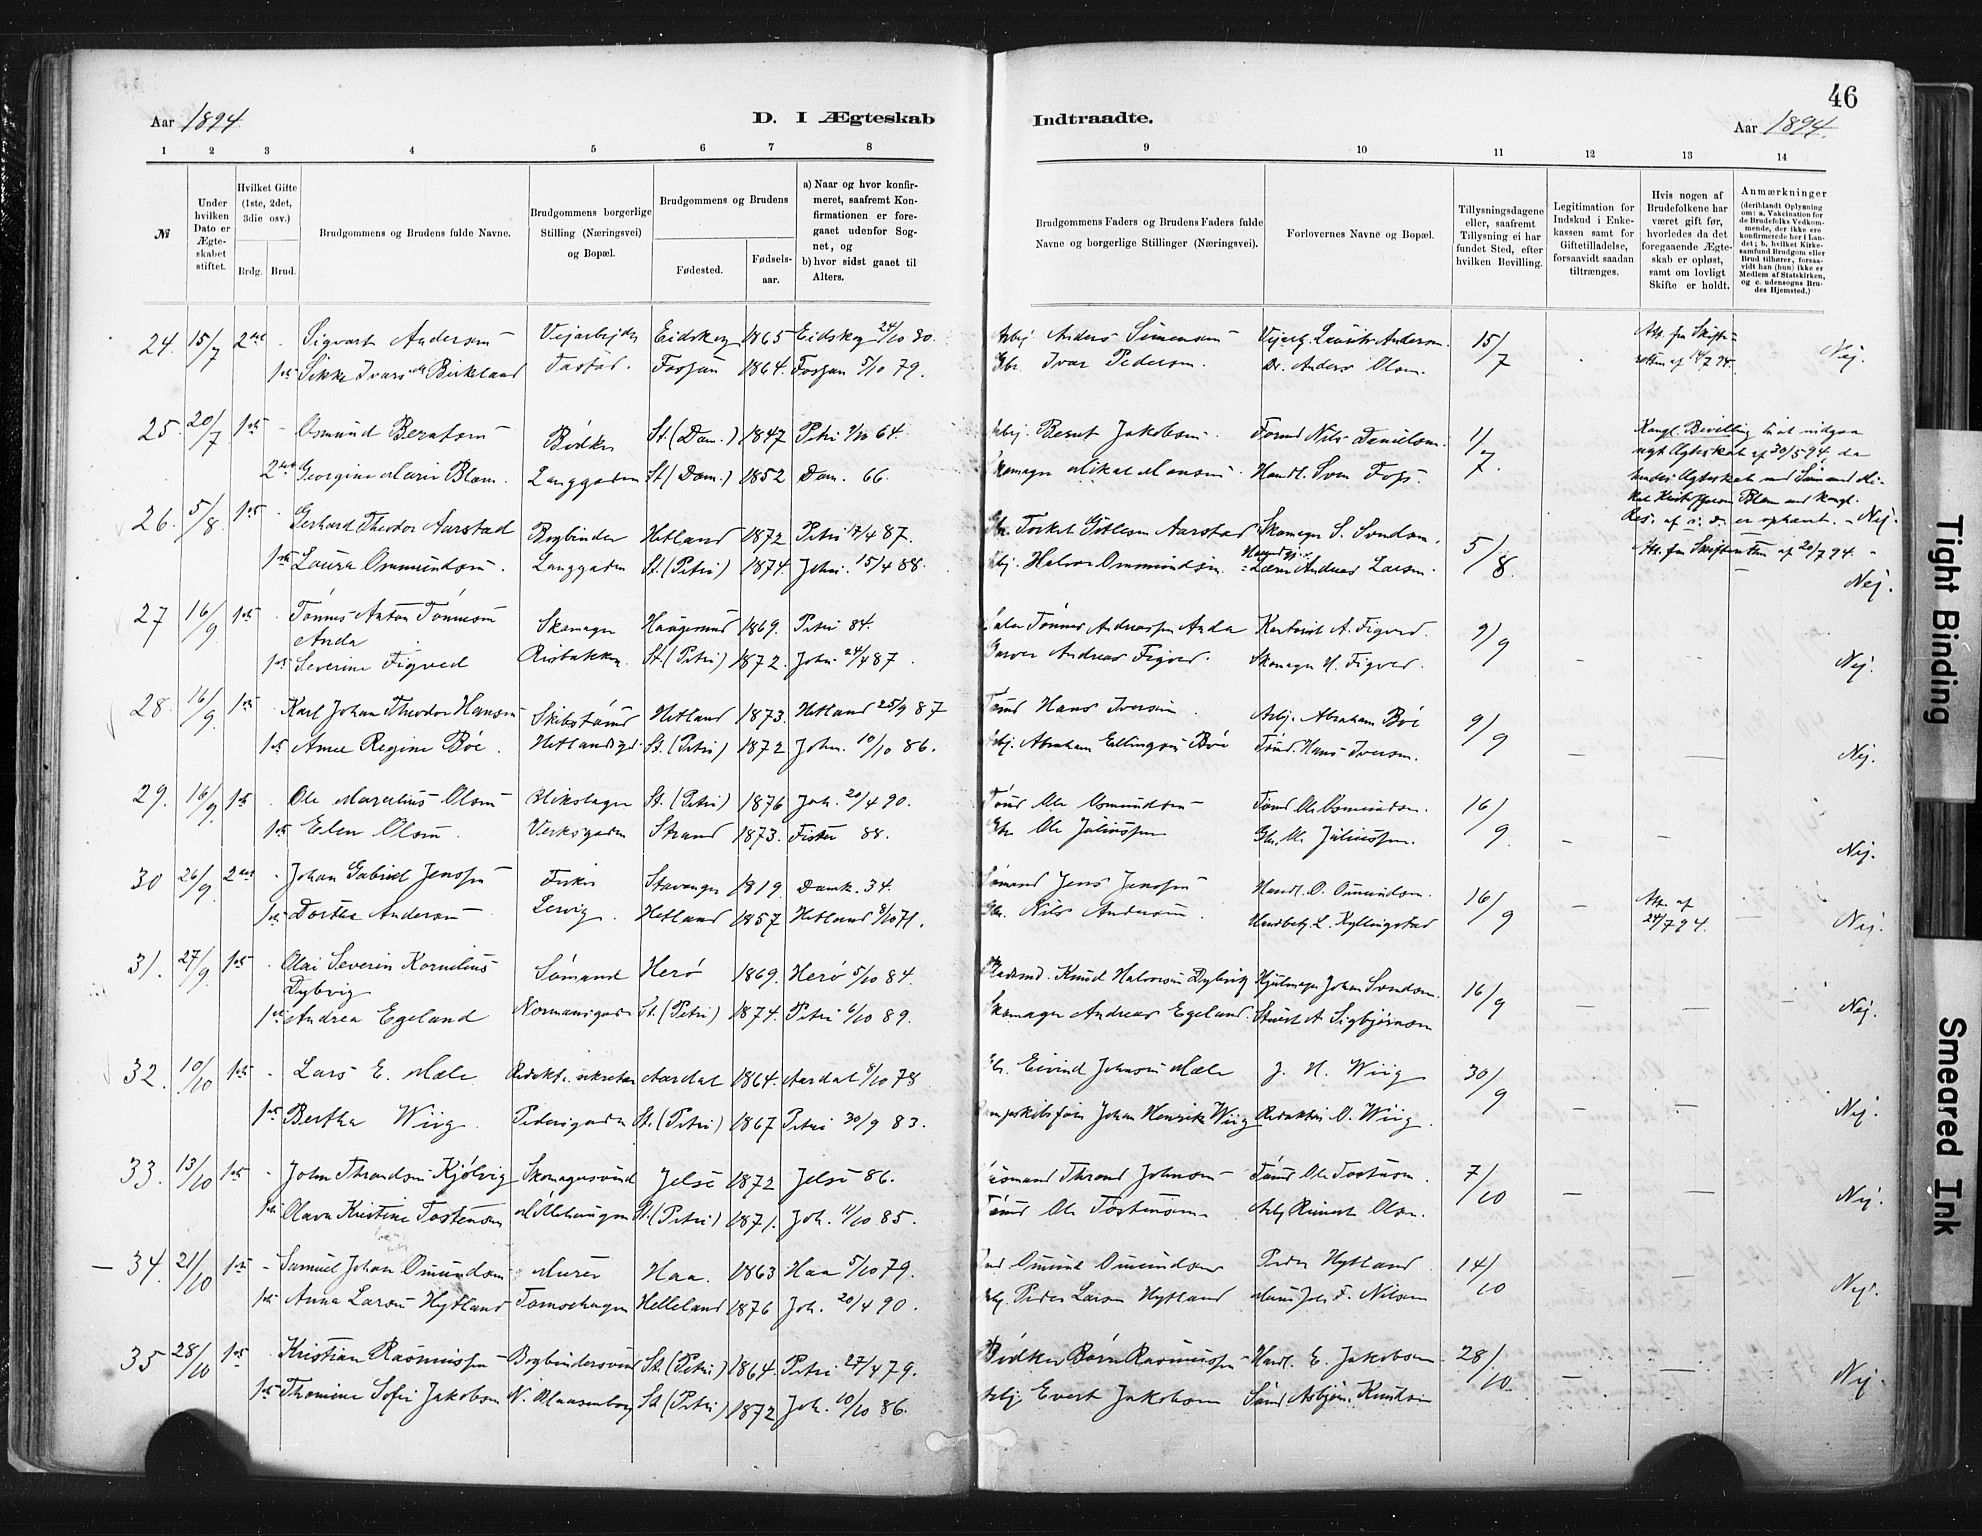 46
Aar 1894
D. I Ægteskab
Indtraadte.
Aar 1894.
1 2 3 4 5 6 7 8
9 10 11 12 13 14
№
Under hvilken Dato er Ægteskabet stiftet.
Hvilket Gifte (1ste, 2det, 3die osv.)
Brdg. Brud.
Brudgommens og Brudens fulde Navne.
Brudgommens borgerlige Stilling (Næringsvei) og Bopæl.
Brudgommens og Brudens
Fødested.
Fødsels-aar.
a) Naar og hvor konfirmeret, saafremt Konfirmationen er foregaaet udenfor Sognet, og
b) hvor sidst gaaet til Alters.
Brudgommens Faders og Brudens Faders fulde Navne og borgerlige Stillinger (Næringsvei).
Forlovernes Navne og Bopæl.
Tillysningsdagene eller, saafremt Tillysning ei har fundet Sted, efter hvilken Bevilling.
Legitimation for Indskud i Enkekassen samt for Giftetilladelse, forsaavidt saadan tiltrænges.
Hvis nogen af Brudefolkene har været gift før, hvorledes da det foregaaende Ægteskab er opløst, samt om lovligt Skifte er holdt.
Anmærkninger (deriblandt Oplysning om: a. Vakcination for de Brudefolks Vedkommende, der ikke ere konfirmerede her i Landet; b. hvilket Kirkesamfund Brudgom eller Brud tilhører, forsaavidt han (hun) ikke er Medlem af Statskirken, og c. udensogns Brudes Hjemsted.)
24. 15/7 2det - Sigvart Andersen Vejarbejder Eidskog 1865 Eidskog 24/10 80. Arbj. Anders Simensen 15/7 Nej.
1ste Sikke Ivarsdtr Birkland Tastad. Fossan 1864. Fossan 5/10 79. Gbr. Ivar Pedersen. Do. Anders Olsen.
25. 20/7 1ste - Osmund Berntsen Bødker St. (Dom.) 1847 Petri 64. Arbj. Bernt Jakobsen. Nils Danielsen. 1/7.
2det Georgine Marie Blom. Langgaden St. (Dom.) 1852 Dom. 66. Skomager Mikal Monsen. Handl. Sven Foss.
26. 5/8 1ste - Gerhard Theodor Aarstad Bogbinder Hetland 1872 Petri 17/4 87. Gbr. Torkel Gitlesen Aarstad Skomager S. Svendsen. 5/8. Nej.
1ste Laura Ommundsen. Langgaden St. (Petri) 1874. Johs. 15/4 88. Arbj. Halvor Ommundsen Andreas Larsen. Att. fra Skifteretten af 20/7 94. Nej.
27 16/9 1ste - Tønnes Anton Tønnesen Anda Skomager Haugesund 1869. Petri 84. Tønnes Andreassen Anda A. Figved. 9/9 Nej.
1ste Severine Figved Risbakken St. (Petri) 1872. Joh. 24/4 87. Garver Andreas Figved. Skomager H. Figved.
28. 16/9 1ste Karl Johan Theodor Hansen Skibstømd Hetland 1873. Hetland 25/9 87 Tømd Hans Iversen. Arbj. Abraham Bøe 9/9 Nej.
1ste Anne Regine Bøe. Hetlandsgd. St. (Petri) 1872. Johs. 10/10 86. Arbj. Abraham Ellingsen Bøe Tømd. Hans Iversen.
29. 16/9. 1ste Ole Marelius Olsen Blikslager St. (Petri) 1876 Joh. 20/4 90. Tømd Ole Osmundsen Tømd Ole Osmundsen. 16/9. Nej.
1ste Elen Olsen. Verksgaden Strand 1873. Fister 88. Gbr. Ole Juliussen Gbr. Ole Juliussen.
30 26/9 2det - Johan Gabriel Jenssen Fisker Stavanger 1819 Domk. 34. Sømand Jens Jenssen Handl. O. Omundsen. 16/9 Att. af 24/7 94. Nej.
1ste Dorthe Andersen Lervig. Hetland 1857 Hetland 8/10 71. Gbr. Nils Andersen. L. Kyllingstad
31. 27/9 1ste - Olai Severin Kornelius Dybvig Sømand Herø 1869. Herø 5/10 84. Knud Halvorsen Dybvig Hjulmager Johan Svendsen. 16/9 Nej.
1ste Andrea Egeland Normansgaden St. (Petri) 1874. Petri 6/10 89. Skomager Andreas Egeland. Stuert A. Sigbjørnsen
32. 10/10 1ste - Lars E. Mæle Redakt.sekretær Aardal 1864. Aardal 8/10 78 Gbr. Eivind Johnsen Mæle J. H. Wiig 30/9 Nej.
1ste Bertha Wiig. Pedersgaden St. (Petri) 1867 Petri 30/9 83. Johan Henrik Wiig Redaktør O. Wiig.
33. 13/10 1ste - John Thrandsen Kjølvig Skomagersvend Jelse 1872 Jelse 86. Thrand Johnsen Tømd Ole Tostensen. 7/10 Nej.
1ste Olava Kristine Tostensen St. (Petri) 1871. Joh. 11/10 85. Tømd Ole Tostensen Arbj Reinert Olsen.
34. 21/10 1ste - Samuel Johan Omundsen Murer Haa. 1863 Haa 5/10 79. Omund Omundsen Peder Hytland 14/10 Nej.
1ste Anna Larsen Hytland Helleland 1876 Joh. 20/4 90. Arbj. Peder Larsen Hytland Murer Joh. F. Nilsen
35 28/10 1ste Kristian Rasmussen Bogbindersvend St. (Petri) 1864. Petri 27/4 79. Bødker Børre Rasmussen Handl. E. Jakobsen 28/10. Nej.
1ste Thomine Sofie Jakobsen N. Blaasenborg St. (Petri) 1872 Joh. 10/10 86. Arbj. Evert Jakobsen Sømd Asbjørn Knudsen
Tight Binding
Smeared Ink